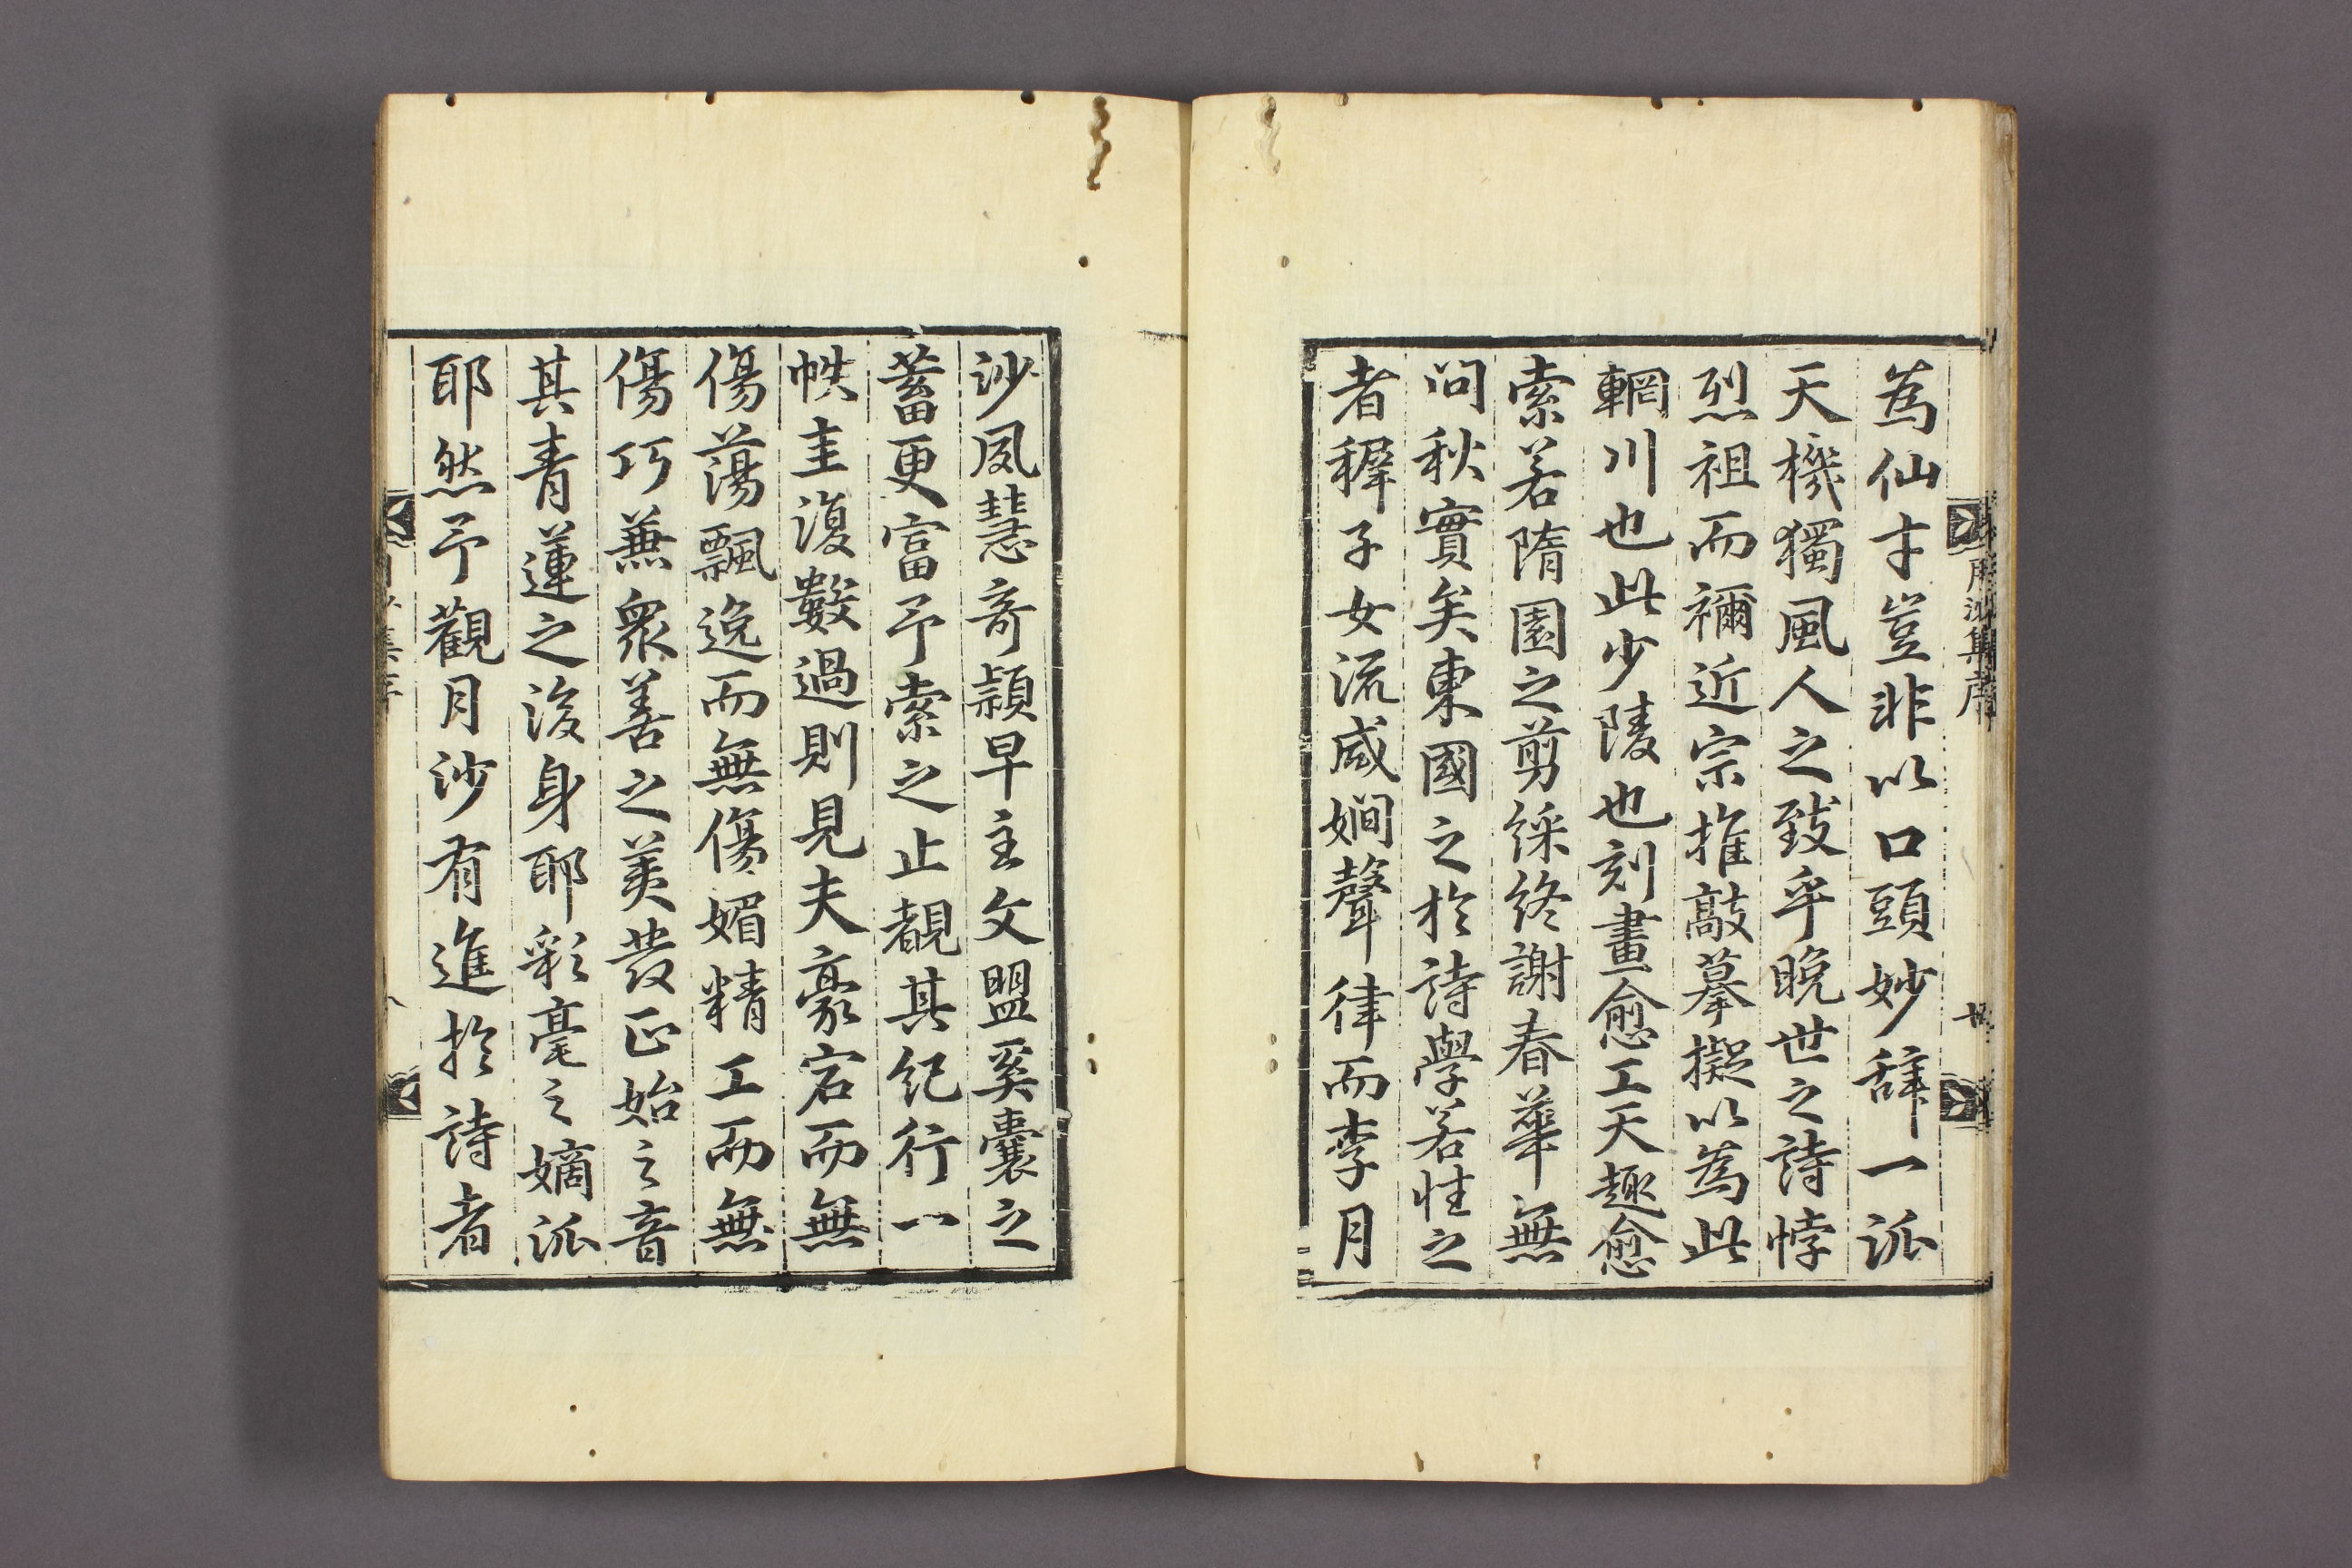 月沙集序
為仙才豈非以口頭妙辭一派
天機獨風人之致乎晚世之詩悖
烈祖而禰近宗推敲摹擬以為此
輞川也此少陵也刻畫愈工天趣愈
索若隋園之剪綵終謝春華無
問秋實矣東國之於詩學若性之
者穉子女流咸嫺聲律而李月
沙夙慧奇穎早主文盟奚囊之
蓄更富予索之止覩其紀行一
帙圭復數過則見夫豪宕而無
傷蕩飄逸而無傷媚精工而無
傷巧兼衆善之美發正始之音
其青蓮之後身耶彩毫之嫡派
耶然予觀月沙有進於詩者